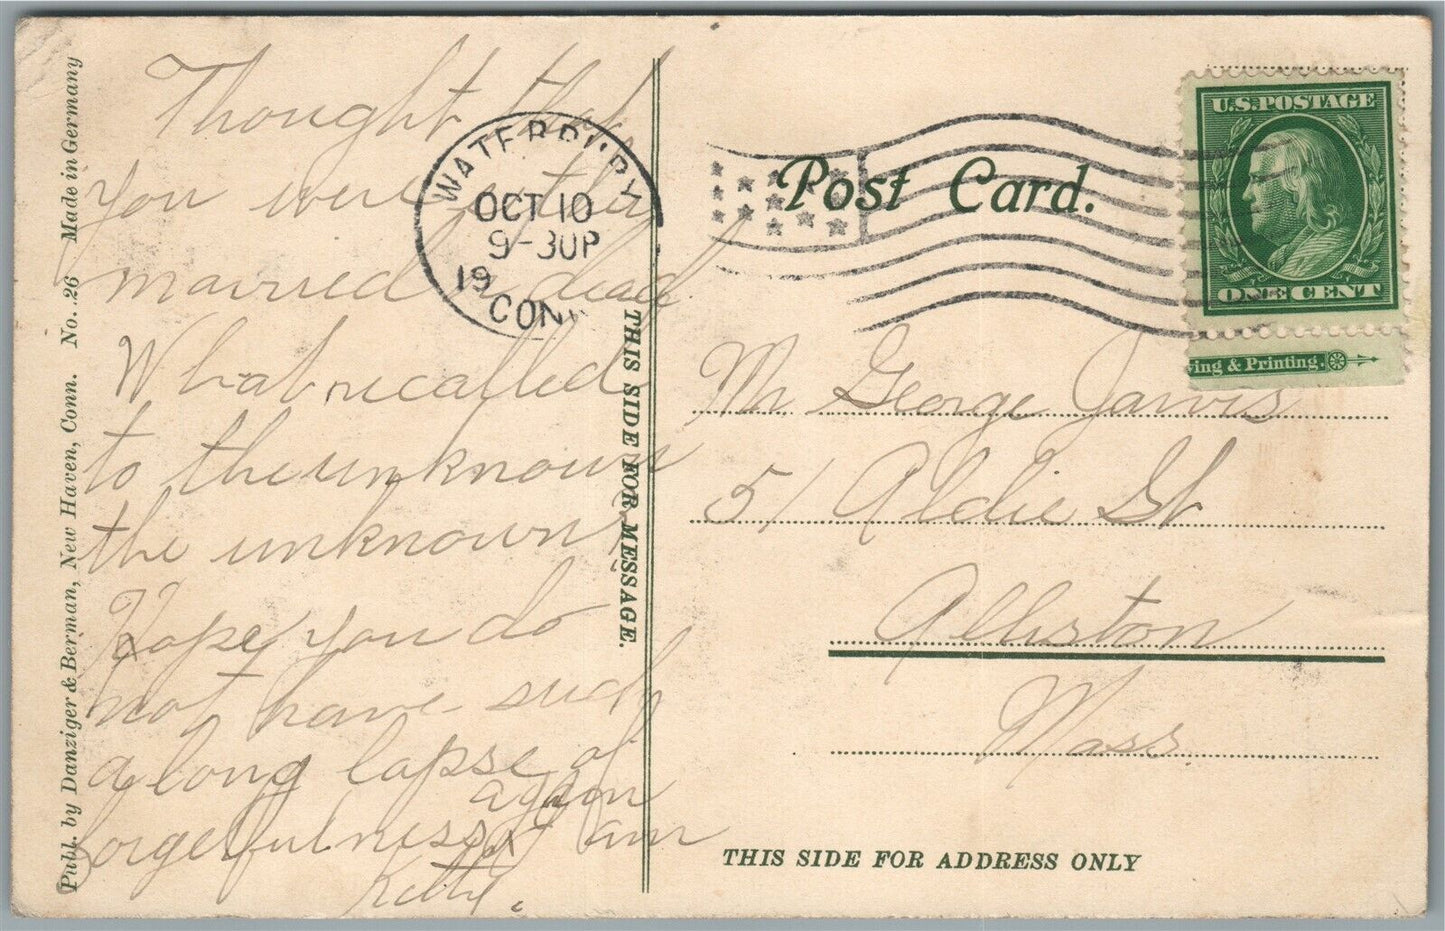 Publ. by Danziger & Berman, New Haven, Conn. No. .26 Made in Germany
Thought that
you were either
married or dead
What recalled
to the unknown
the unknown?
Hope you do
not have such
a long lapse of
forgetfulness again
I am
Kitty.
WATERBURY
OCT 10
9-30P
19
CONN
THIS SIDE FOR MESSAGE.
Post Card.
U.S. POSTAGE
ONE CENT
ving & Printing.
Mr George Jarvis
51 Aldie St
Allston
Mass
THIS SIDE FOR ADDRESS ONLY